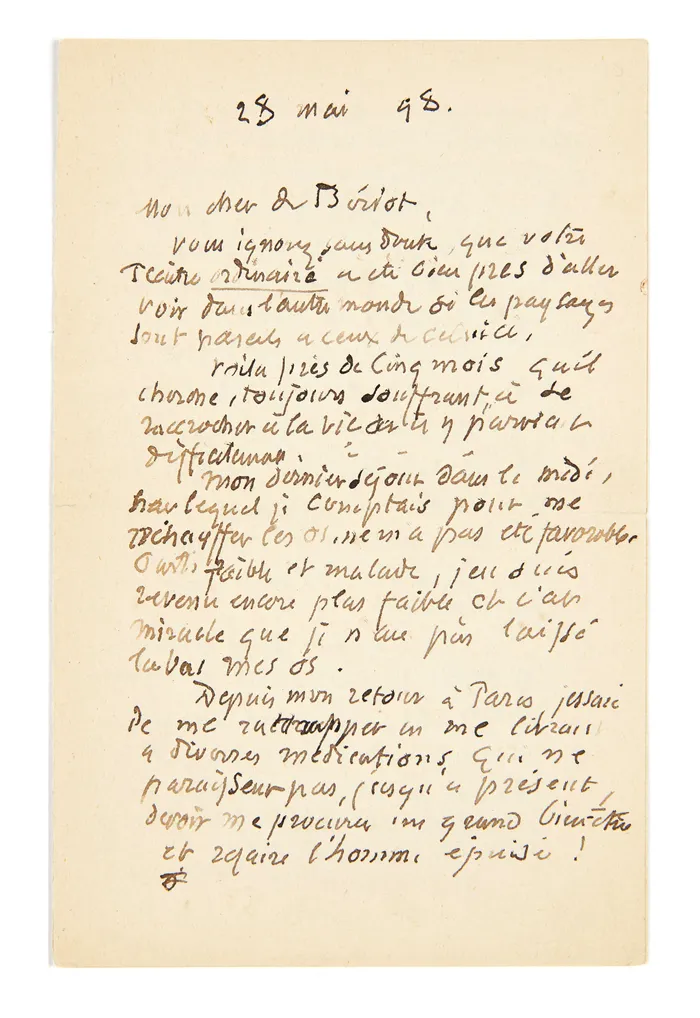 28 mai 98.
Mon cher de Bériot,
Vous ignorez sans doute, que votre
ordinaire a été bien près d'aller
voir dans l'autre monde si les paysages
sont pareils a ceux de
Voila près de Cinq mois qu'il
cherche, toujours souffrant, à se
raccrocher à la vie et à y parvient
difficilement.
Mon dernier séjour dans le midi,
sur lequel je Comptais pour me
réchauffer les os, ne m'a pas été favorable.
Parti faible et malade, j'en suis
revenu encore plus faible et c'est
miracle que je n'aie pas laissé
labas mes os.
Depuis mon retour à Paris, j'essaie
de me rattrapper en me livrant
a diverses médications, qui ne
paraissent pas, jusqu'a présent,
devoir me procurer un grand bien-être
et refaire l'homme épuisé !